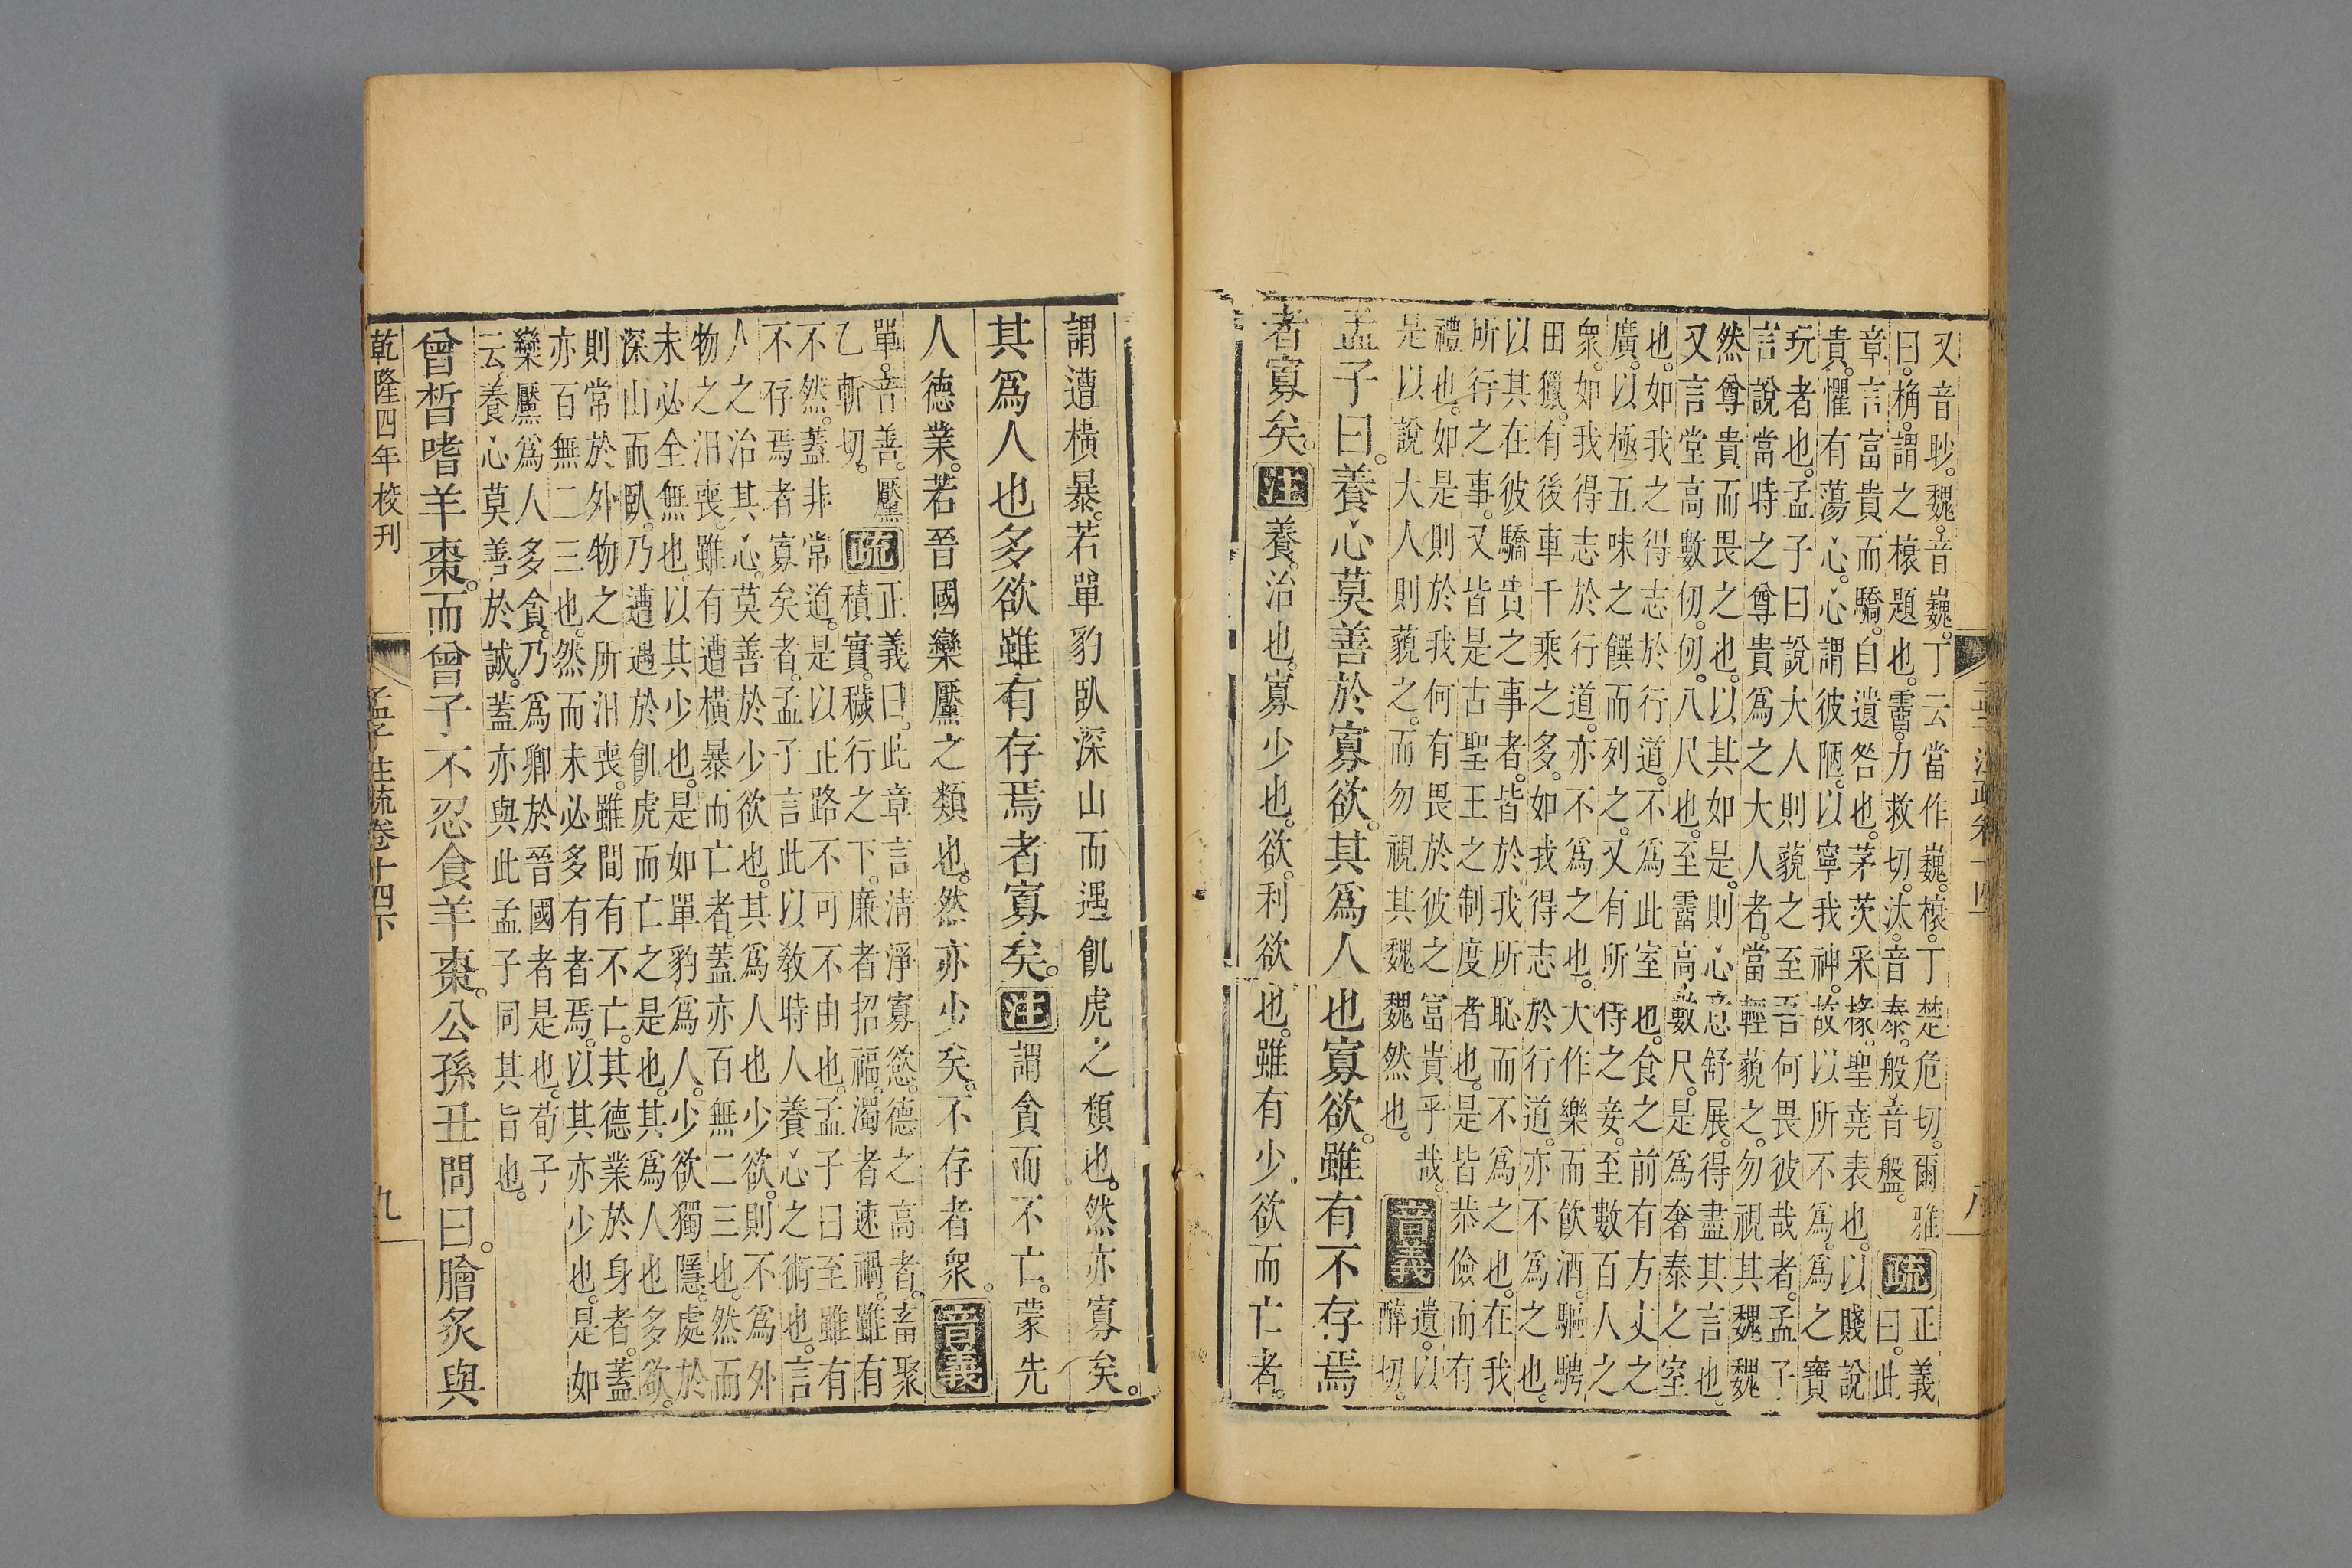 又音眇。魏。音巍。丁云當作巍。榱。丁楚危切。爾雅
曰。桷。謂之榱。題也。霤。力救切。汰。音泰。般。音盤。
疏
正義
曰。此
章言富貴而驕。自遺咎也。茅茨采椽。聖堯表也。以賤說
貴。懼有蕩心。心謂彼陋。以寧我神。故以所不爲。爲之寶
玩者也。孟子曰說大人則藐之至吾何畏彼哉者。孟子
言說當時之尊貴爲之大人者。當輕藐之。勿視其魏魏
然尊貴而畏之也。以其如是。則心意舒展。得盡其言也。
又言堂高數仞。仞。八尺也。至霤高數尺。是爲奢泰之室
也。如我之得志於行道。不爲此室也。食之前有方丈之
廣。以極五味之饌而列之。又有所侍之妾。至數百人之
衆。如我得志於行道。亦不爲之也。大作樂而飲酒。驅騁
田獵。有後車千乘之多。如我得志於行道。亦不爲之也。
以其在彼驕貴之事者。皆於我所恥而不爲之也。在我
所行之事。又皆是古聖王之制度者也。是皆恭儉而有
禮也。如是則於我何有畏於彼之富貴乎哉。
是以說大人則藐之。而勿視其魏魏然也。
音義
遺。以
醉切。
孟子曰。養心莫善於寡欲。其爲人也寡欲。雖有不存焉
者寡矣。注養。治也。寡。少也。欲。利欲也。雖有少欲而亡者。
謂遭橫暴。若單豹臥深山而遇飢虎之類也。然亦寡矣。
其爲人也多欲。雖有存焉者寡矣。注謂貪而不亡。蒙先
人德業。若晉國欒黶之類也。然亦少矣。不存者衆。音義
單。音善。黶
乙斬切。
疏
正義曰。此章言清淨寡慾。德之高者。畜聚
積實。穢行之下。廉者招福。濁者速禍。雖有
不然。蓋非常道。是以正路不可不由也。孟子曰至雖有
不存焉者寡矣者。孟子言此以敎時人養心之術也。言
人之治其心。莫善於少欲也。其爲人也少欲。則不爲外
物之汨喪。雖有遭橫暴而亡者。蓋亦百無二三也。然而
未必全無也。以其少也。是如單豹爲人。少欲獨隱。處於
深山而臥。乃遭遇於飢虎而亡之是也。其爲人也多欲。
則常於外物之所汨喪。雖間有不亡。其德業於身者。蓋
亦百無二三也。然而未必多有者焉。以其亦少也。是如
欒黶爲人多貪。乃爲卿於晉國者是也。荀子
云。養心莫善於誠。蓋亦與此孟子同其旨也。
曾晳嗜羊棗。而曾子不忍食羊棗。公孫丑問曰。膾炙與
乾隆四年校刊
孟子注疏卷十四下
九